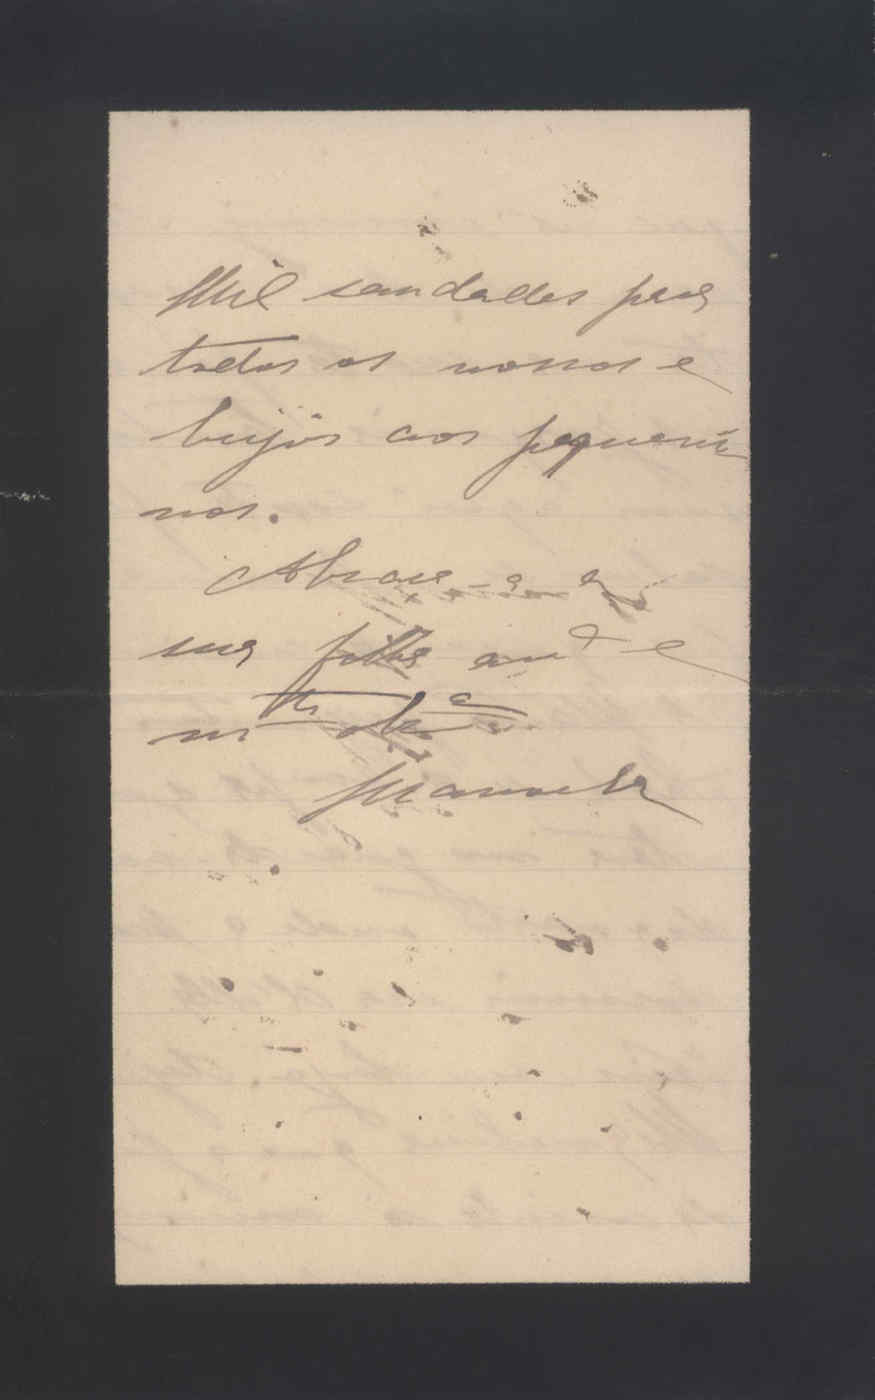 Mil saudades para
todos os nossos e
beijos aos pequeni
nos.
Abraça-a a
sua filha am.ª e
m.to ob.ª
Manuela